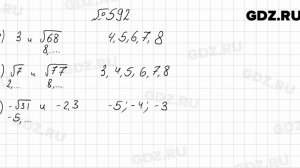 GDZ.RU
№592
) 3 и √68 4, 5, 6, 7, 8
8,...
) √7 и √77 3, 4, 5, 6, 7, 8
2,... 8,...
) -√31 и -2,3 -5; -4; -3
-5,...
GDZ.RU